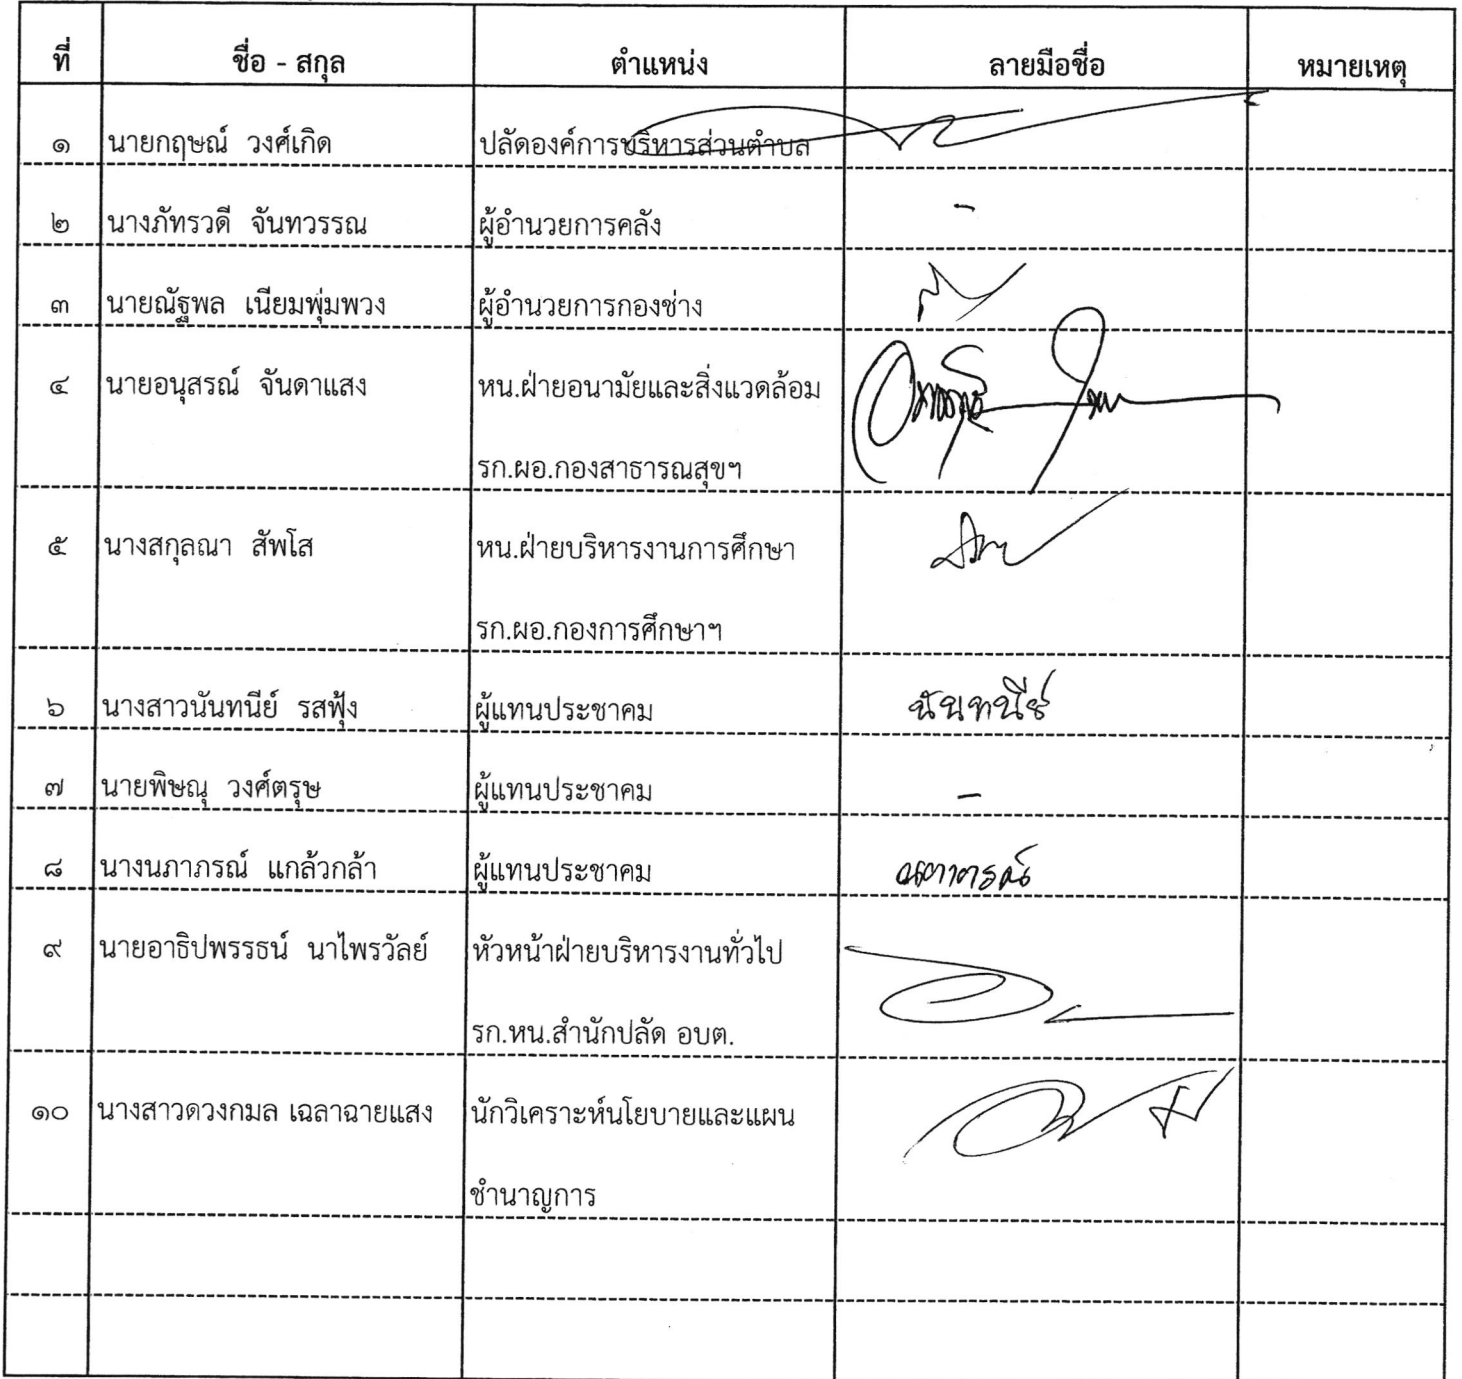 ที่ ชื่อ - สกุล ตำแหน่ง ลายมือชื่อ หมายเหตุ
๑ นายกฤษณ์ วงศ์เกิด ปลัดองค์การบริหารส่วนตำบล
๒ นางภัทรวดี จันทวรรณ ผู้อำนวยการคลัง -
๓ นายณัฐพล เนียมพุ่มพวง ผู้อำนวยการกองช่าง
๔ นายอนุสรณ์ จันดาแสง หน.ฝ่ายอนามัยและสิ่งแวดล้อม
รก.ผอ.กองสาธารณสุขฯ
๕ นางสกุลณา สัพโส หน.ฝ่ายบริหารงานการศึกษา
รก.ผอ.กองการศึกษาฯ
๖ นางสาวนันทนีย์ รสฟุ้ง ผู้แทนประชาคม นันทนีย์
๗ นายพิษณุ วงศ์ตรุษ ผู้แทนประชาคม -
๘ นางนภาภรณ์ แกล้วกล้า ผู้แทนประชาคม นภาภรณ์
๙ นายอาธิปพรรธน์ นาไพรวัลย์ หัวหน้าฝ่ายบริหารงานทั่วไป
รก.หน.สำนักปลัด อบต.
๑๐ นางสาวดวงกมล เฉลาฉายแสง นักวิเคราะห์นโยบายและแผน
ชำนาญการ